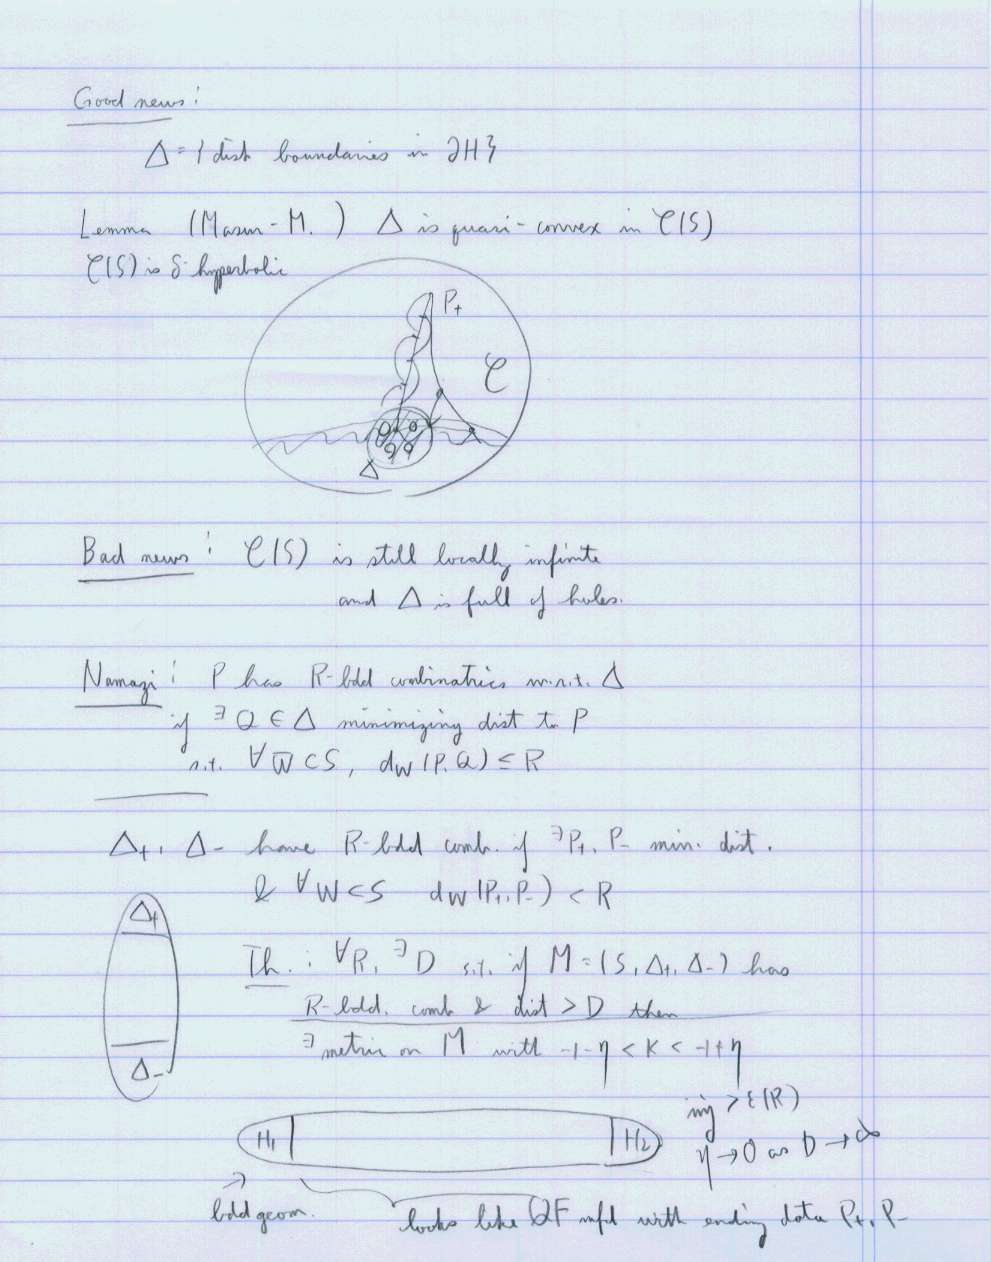 Good news:
Δ = { disk boundaries in ∂H }
Lemma (Masur-M.) Δ is quasi-convex in C(S)
C(S) is δ hyperbolic
P+
C
Δ
Bad news: C(S) is still locally infinite
and Δ is full of holes.
Namazi: P has R-bdd combinatrics w.r.t. Δ
if ∃ Q ∈ Δ minimizing dist to P
s.t. ∀ W ⊂ S, dW(P, Q) ≤ R
Δ+, Δ- have R-bdd comb. if ∃ P+, P- min. dist.
& ∀ W ⊂ S dW(P+, P-) < R
Δ+
Th.: ∀R, ∃ D s.t. if M = (S, Δ+, Δ-) has
R-bdd. comb & dist > D then
∃ metric on M with -1-η < K < -1+η
Δ-
inj > ε(R)
H1 H2
η → 0 as D → ∞
bdd geom.
looks like QF mfd with ending data P+, P-